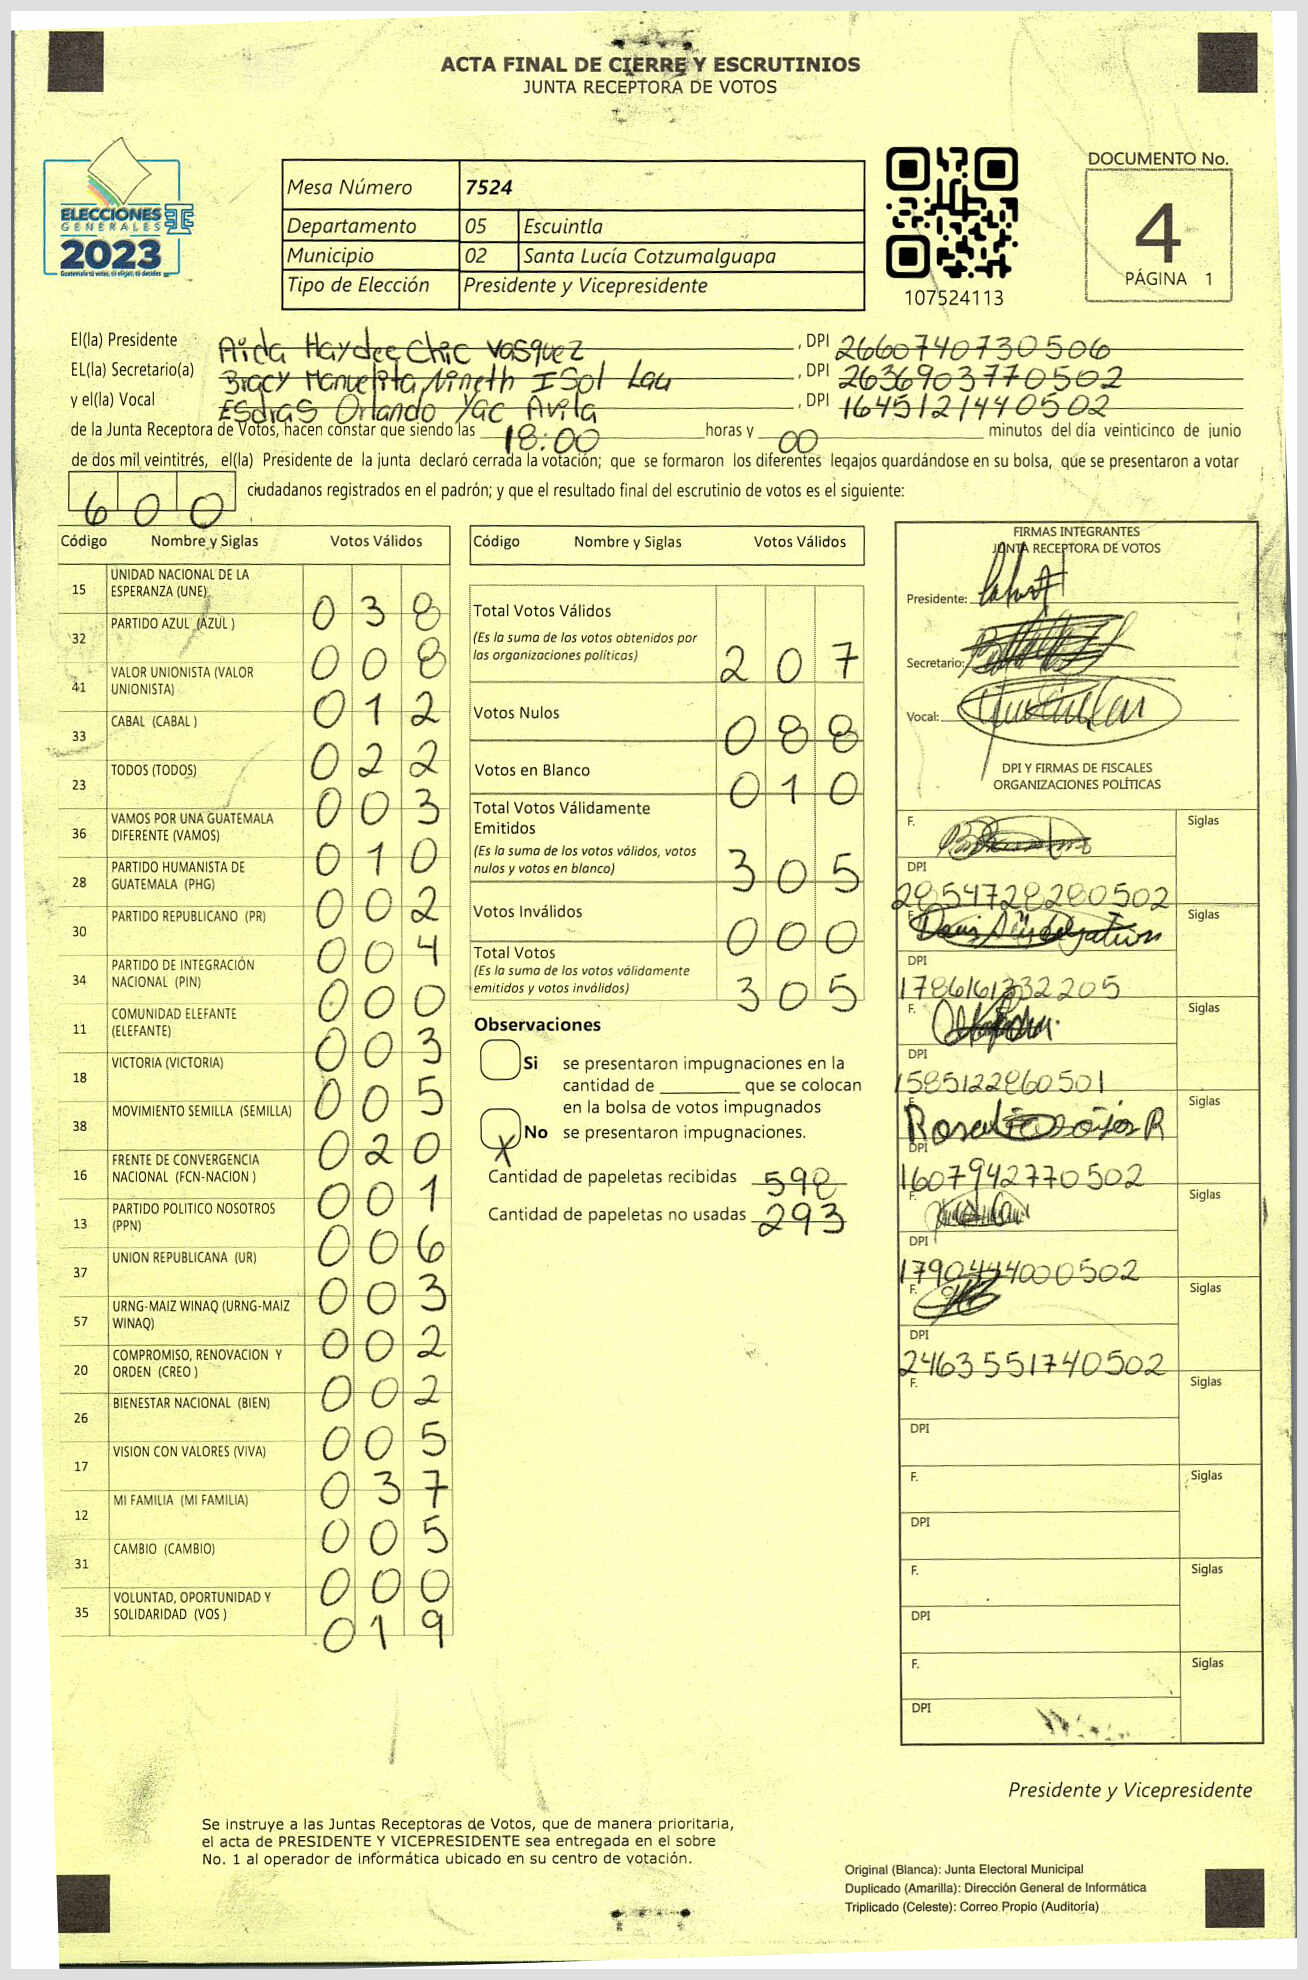 ACTA FINAL DE CIERRE Y ESCRUTINIOS
JUNTA RECEPTORA DE VOTOS
ELECCIONES
GENERALES
2023
Guatemala tú votas, tú eliges, tú decides
Mesa Número 7524
Departamento 05 Escuintla
Municipio 02 Santa Lucía Cotzumalguapa
Tipo de Elección Presidente y Vicepresidente
107524113
DOCUMENTO No.
4
PÁGINA 1
El(la) Presidente Aida Haydee Chic Vasquez , DPI 2660740730506
EL(la) Secretario(a) Bracy Manuelita Nineth ISol Lau , DPI 2636903770502
y el(la) Vocal ESdras Orlando Yac Avila , DPI 1645121440502
de la Junta Receptora de Votos, hacen constar que siendo las 18:00 horas y 00 minutos del día veinticinco de junio
de dos mil veintitrés, el(la) Presidente de la junta declaró cerrada la votación; que se formaron los diferentes legajos guardándose en su bolsa, que se presentaron a votar
600 ciudadanos registrados en el padrón; y que el resultado final del escrutinio de votos es el siguiente:
Código Nombre y Siglas Votos Válidos
15 UNIDAD NACIONAL DE LA ESPERANZA (UNE) 038
32 PARTIDO AZUL (AZUL ) 008
41 VALOR UNIONISTA (VALOR UNIONISTA) 012
33 CABAL (CABAL ) 022
23 TODOS (TODOS) 003
36 VAMOS POR UNA GUATEMALA DIFERENTE (VAMOS) 010
28 PARTIDO HUMANISTA DE GUATEMALA (PHG) 002
30 PARTIDO REPUBLICANO (PR) 004
34 PARTIDO DE INTEGRACIÓN NACIONAL (PIN) 000
11 COMUNIDAD ELEFANTE (ELEFANTE) 003
18 VICTORIA (VICTORIA) 005
38 MOVIMIENTO SEMILLA (SEMILLA) 020
16 FRENTE DE CONVERGENCIA NACIONAL (FCN-NACION ) 001
13 PARTIDO POLITICO NOSOTROS (PPN) 006
37 UNION REPUBLICANA (UR) 003
57 URNG-MAIZ WINAQ (URNG-MAIZ WINAQ) 002
20 COMPROMISO, RENOVACION Y ORDEN (CREO ) 002
26 BIENESTAR NACIONAL (BIEN) 005
17 VISION CON VALORES (VIVA) 037
12 MI FAMILIA (MI FAMILIA) 005
31 CAMBIO (CAMBIO) 000
35 VOLUNTAD, OPORTUNIDAD Y SOLIDARIDAD (VOS ) 019
Código Nombre y Siglas Votos Válidos
Total Votos Válidos 207
(Es la suma de los votos obtenidos por
las organizaciones políticas)
Votos Nulos 088
Votos en Blanco 010
Total Votos Válidamente
Emitidos 305
(Es la suma de los votos válidos, votos
nulos y votos en blanco)
Votos Inválidos 000
Total Votos 305
(Es la suma de los votos válidamente
emitidos y votos inválidos)
Observaciones
Si se presentaron impugnaciones en la
cantidad de ________ que se colocan
en la bolsa de votos impugnados
X No se presentaron impugnaciones.
Cantidad de papeletas recibidas 598
Cantidad de papeletas no usadas 293
FIRMAS INTEGRANTES
JUNTA RECEPTORA DE VOTOS
Presidente:
Secretario:
Vocal:
DPI Y FIRMAS DE FISCALES
ORGANIZACIONES POLÍTICAS
F. Siglas
DPI
2854728280502
F. Siglas
DPI
1786161332205
F. Siglas
DPI
1585122860501
F. Siglas
DPI
1607942770502
F. Siglas
DPI
1790444000502
F. Siglas
DPI
2463551740502
F. Siglas
DPI
F. Siglas
DPI
F. Siglas
DPI
F. Siglas
DPI
Presidente y Vicepresidente
Se instruye a las Juntas Receptoras de Votos, que de manera prioritaria,
el acta de PRESIDENTE Y VICEPRESIDENTE sea entregada en el sobre
No. 1 al operador de informática ubicado en su centro de votación.
Original (Blanca): Junta Electoral Municipal
Duplicado (Amarilla): Dirección General de Informática
Triplicado (Celeste): Correo Propio (Auditoría)